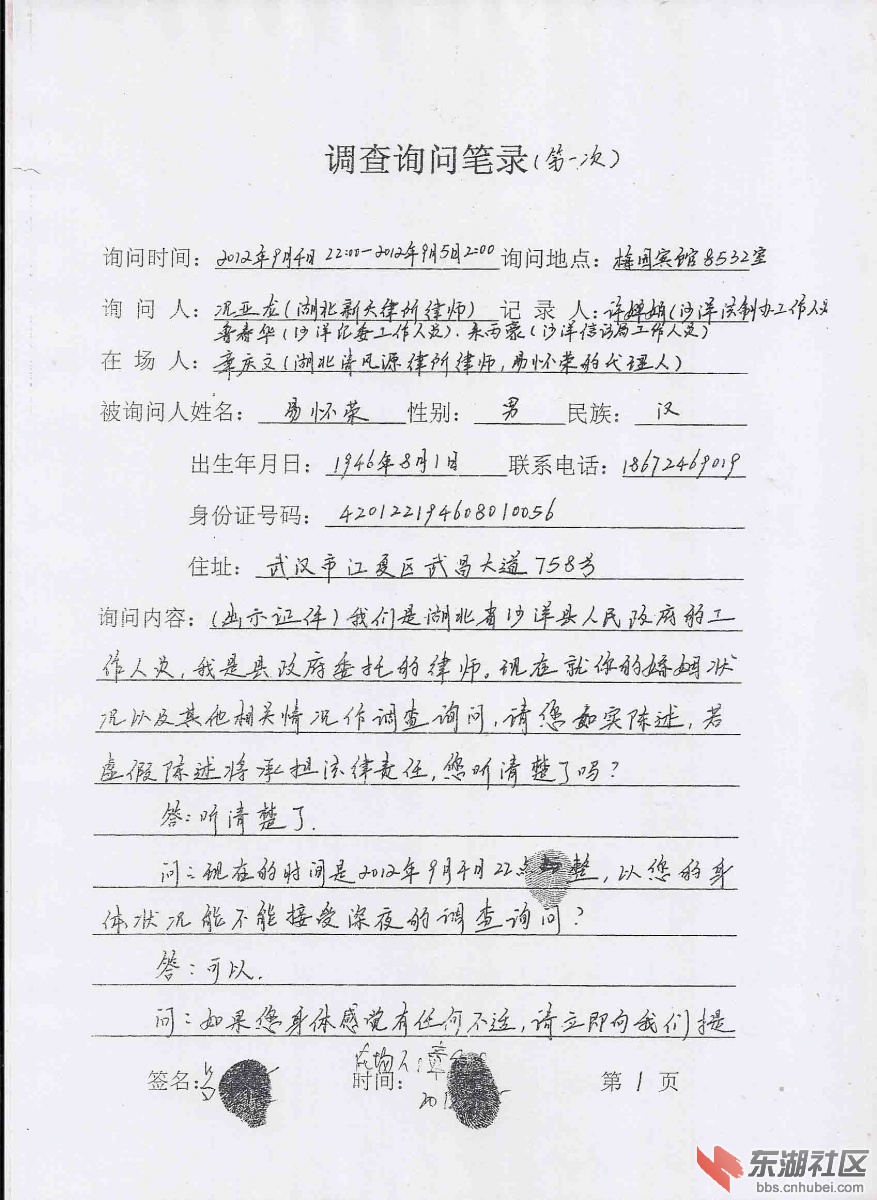 调查询问笔录(第一次)
询问时间：2012年9月4日22:00-2012年9月5日2:00 询问地点：梅园宾馆8532室
询 问 人：况亚龙(湖北新天律所律师) 记 录 人：许婵娟(沙洋法制办工作人员
鲁春华(沙洋纪委工作人员)、朱丙豪(沙洋信访局工作人员)
在 场 人：章庆文(湖北清风源律所律师,易怀荣的代理人)
被询问人姓名：易怀荣 性别：男 民族：汉
出生年月日：1946年8月1日 联系电话：18672469019
身份证号码：420122194608010056
住址：武汉市江夏区武昌大道758号
询问内容：(出示证件)我们是湖北省沙洋县人民政府的工
作人员,我是县政府委托的律师。现在就你的婚姻状
况以及其他相关情况作调查询问,请您如实陈述,若
虚假陈述将承担法律责任,您听清楚了吗?
答:听清楚了.
问:现在的时间是2012年9月4日22点整,以您的身
体状况能不能接受深夜的调查询问?
答:可以.
问:如果您身体感觉有任何不适,请立即向我们提
在场人:章
签名: 时间: 第 1 页
东湖社区
bbs.cnhubei.com